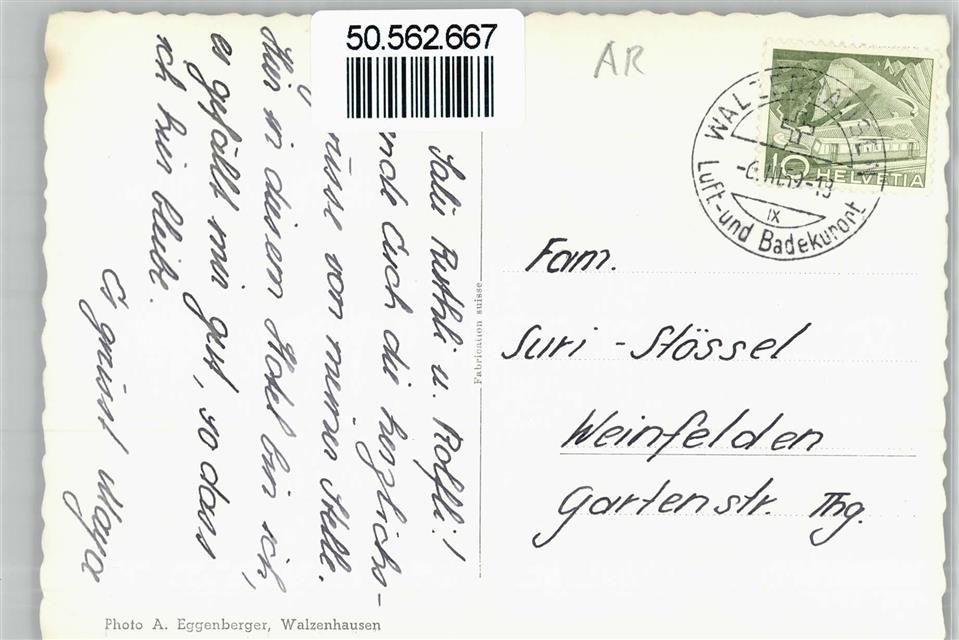 50.562.667
AR
WALZENHAUSEN
-6.III.59-19
IX
Luft-und Badekurort
10 HELVETIA
Salü Ruthli u. Rolfli!
Euch die herzlichs-
von meiner Stelle.
Hier in diesem Hotel bin ich,
es gefällt mir gut, so dass
ich hier bleibe.
Es grüsst
Fabrication suisse
Fam.
Suri - Stössel
Weinfelden
Gartenstr. Thg.
Photo A. Eggenberger, Walzenhausen